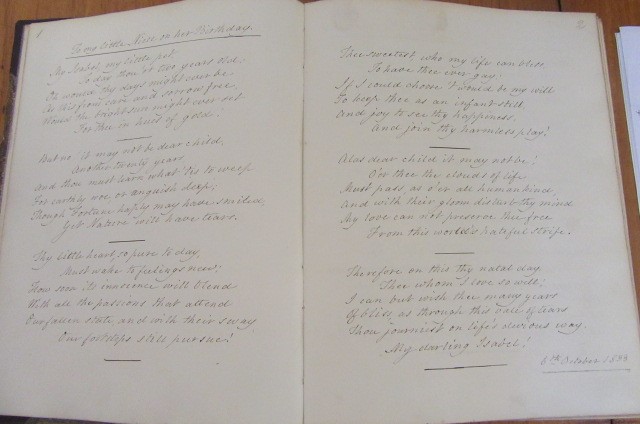 1
To my little Niece on her Birthday.
My Isabel, my little pet
To day thou'rt two years old;
Oh would thy days might ever be
As this from care and sorrow free,
Would the bright sun might ever set
For thee in hues of gold.
But no it may not be dear child,
Another twenty years
And thou must learn what 'tis to weep
For earthly woe or anguish deep;
Though Fortune haply may have smiled,
Yet Nature will have tears.
Thy little heart, so pure to day,
Must wake to feelings new;
How soon its innocence will blend
With all the passions that attend
Our fallen state, and with their sway
Our footsteps still pursue!
2
Thee sweetest, who my life can bless
To have thee ever gay;
If I could choose I would be my will
To keep thee as an infant still,
And joy to see thy happiness,
And join thy harmless play!
Alas dear child it may not be!
O'er thee the clouds of life
Must pass as o'er all humankind
And with their gloom disturb thy mind
My love can not preserve thee free
From this world's hateful strife.
Therefore on this thy natal day
Thee whom I love so well,
I can but wish thee many years
Of bliss, as through this vale of tears
Thou journeiest on life's devious way.
My darling Isabel!
6th October 1858